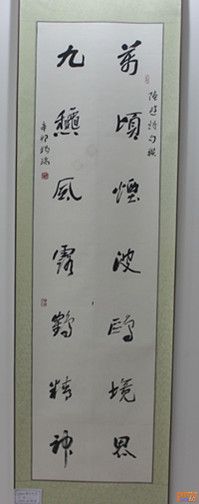 陸游詩句
萬頃煙波鷗境界
九穐風露鶴精神
辛卯